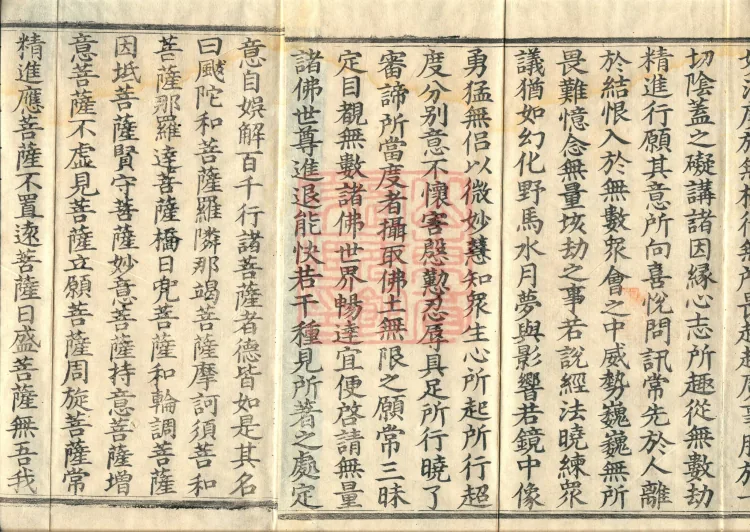 切陰蓋之礙講諸因緣心志所趣從無數劫
精進行願其意所向喜悅問訊常先於人離
於結恨入於無數眾會之中威勢巍巍無所
畏難憶念無量垓劫之事若說經法曉練眾
議猶如幻化野馬水月夢與影響若鏡中像
勇猛無侶以微妙慧知眾生心所起所行超
度分別意不懷害慇懃忍辱具足所行曉了
審諦所當度者攝取佛土無限之願常三昧
定目覩無數諸佛世界暢達宜便啓請無量
諸佛世尊進退能快若干種見所著之處定
意自娛解百千行諸菩薩者德皆如是其名
曰颰陀和菩薩羅隣那竭菩薩摩訶須菩和
菩薩那羅達菩薩橋日兜菩薩和輪調菩薩
因坻菩薩賢守菩薩妙意菩薩持意菩薩增
意菩薩不虛見菩薩立願菩薩周旋菩薩常
精進應菩薩不置遠菩薩日盛菩薩無吾我